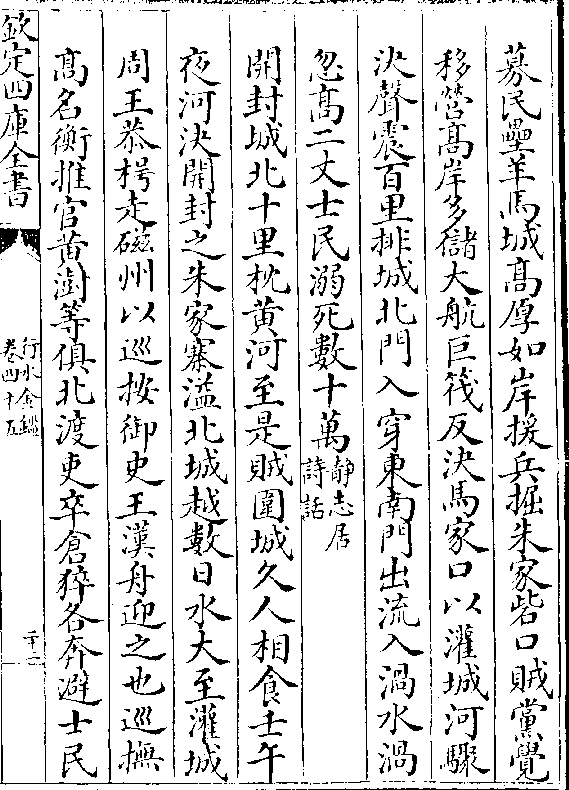 募民壘羊馬城高厚如岸援兵掘朱家砦口賊黨覺
移營高岸多儲大航巨筏反決馬家口以灌城河驟
決聲震百里排城北門入穿東南門出流入渦水渦
忽高二丈士民溺死數十萬靜志居詩話
開封城北十里枕黄河至是賊圍城久人相食壬午
夜河決開封之朱家寨溢北城越數日水大至灌城
周王恭枵走磁州以巡按御史王漢舟迎之也巡撫
高名衡推官黄澍等俱北渡吏卒倉猝各奔避士民
欽定四庫全書
行水金鑑
卷四十五
二十二